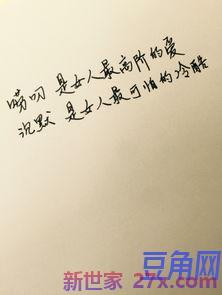 唠叨 是女人最高阶的爱
沉默 是女人最可怕的冷酷
豆角网
新世家 27x.com